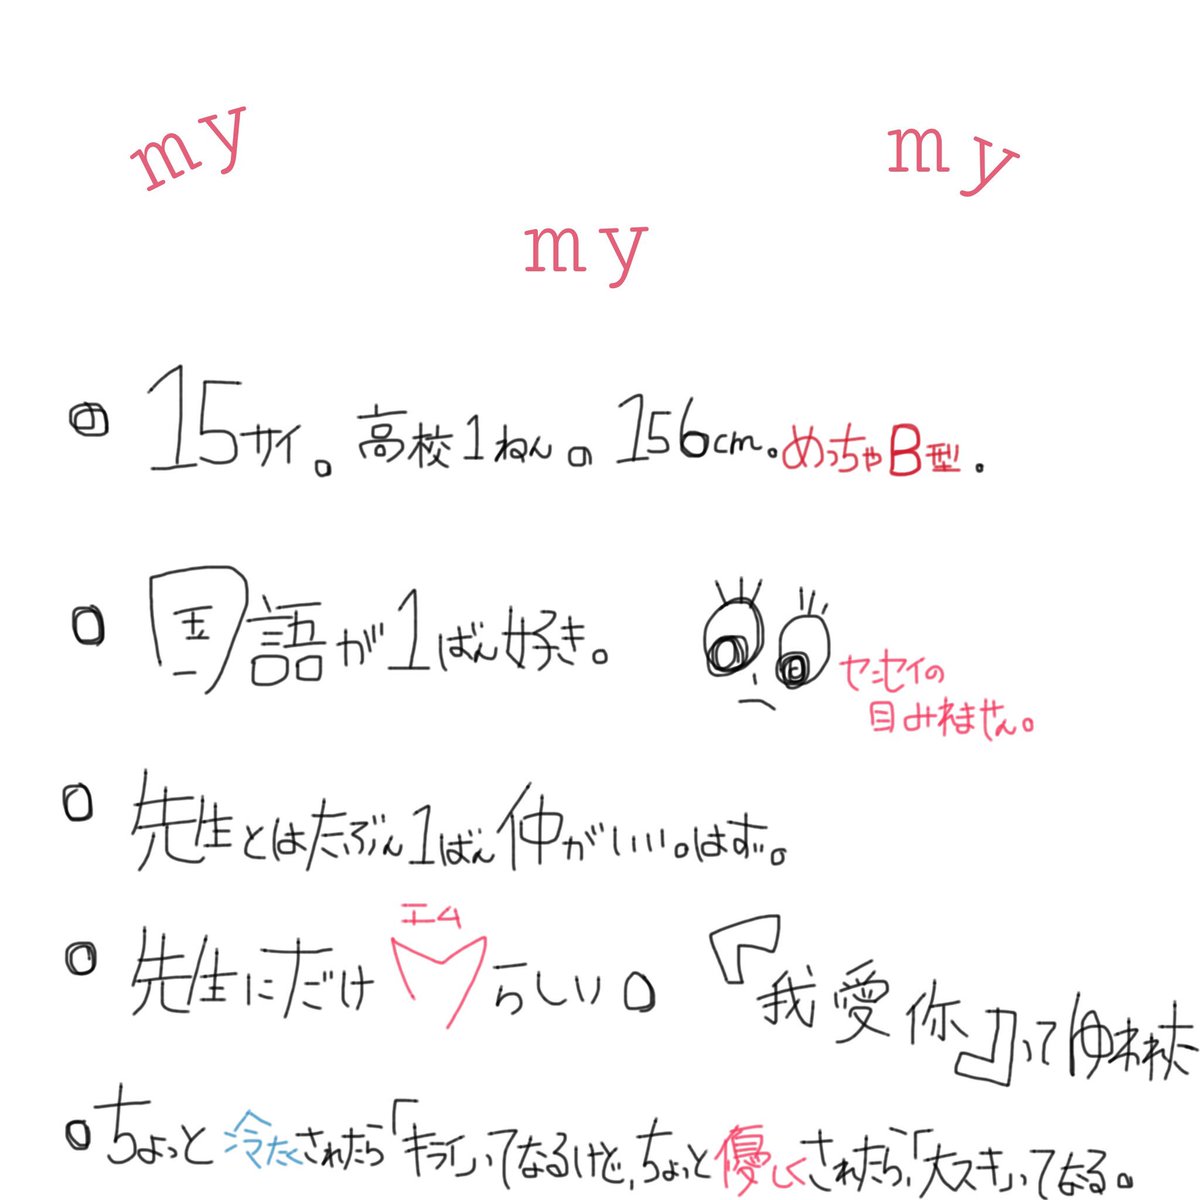 my
my
my
15サイ。高校1ねんの156cm。めっちゃB型。
国語が1ばん好き。
センセイの
目みれません。
先生とはたぶん1ばん仲がいい。はず。
エム
先生にだけMらしい。
『我愛你』って
ちょっと冷たくされたら「キライ」ってなるけど、ちょっと優しくされたら、「大スキ」ってなる。